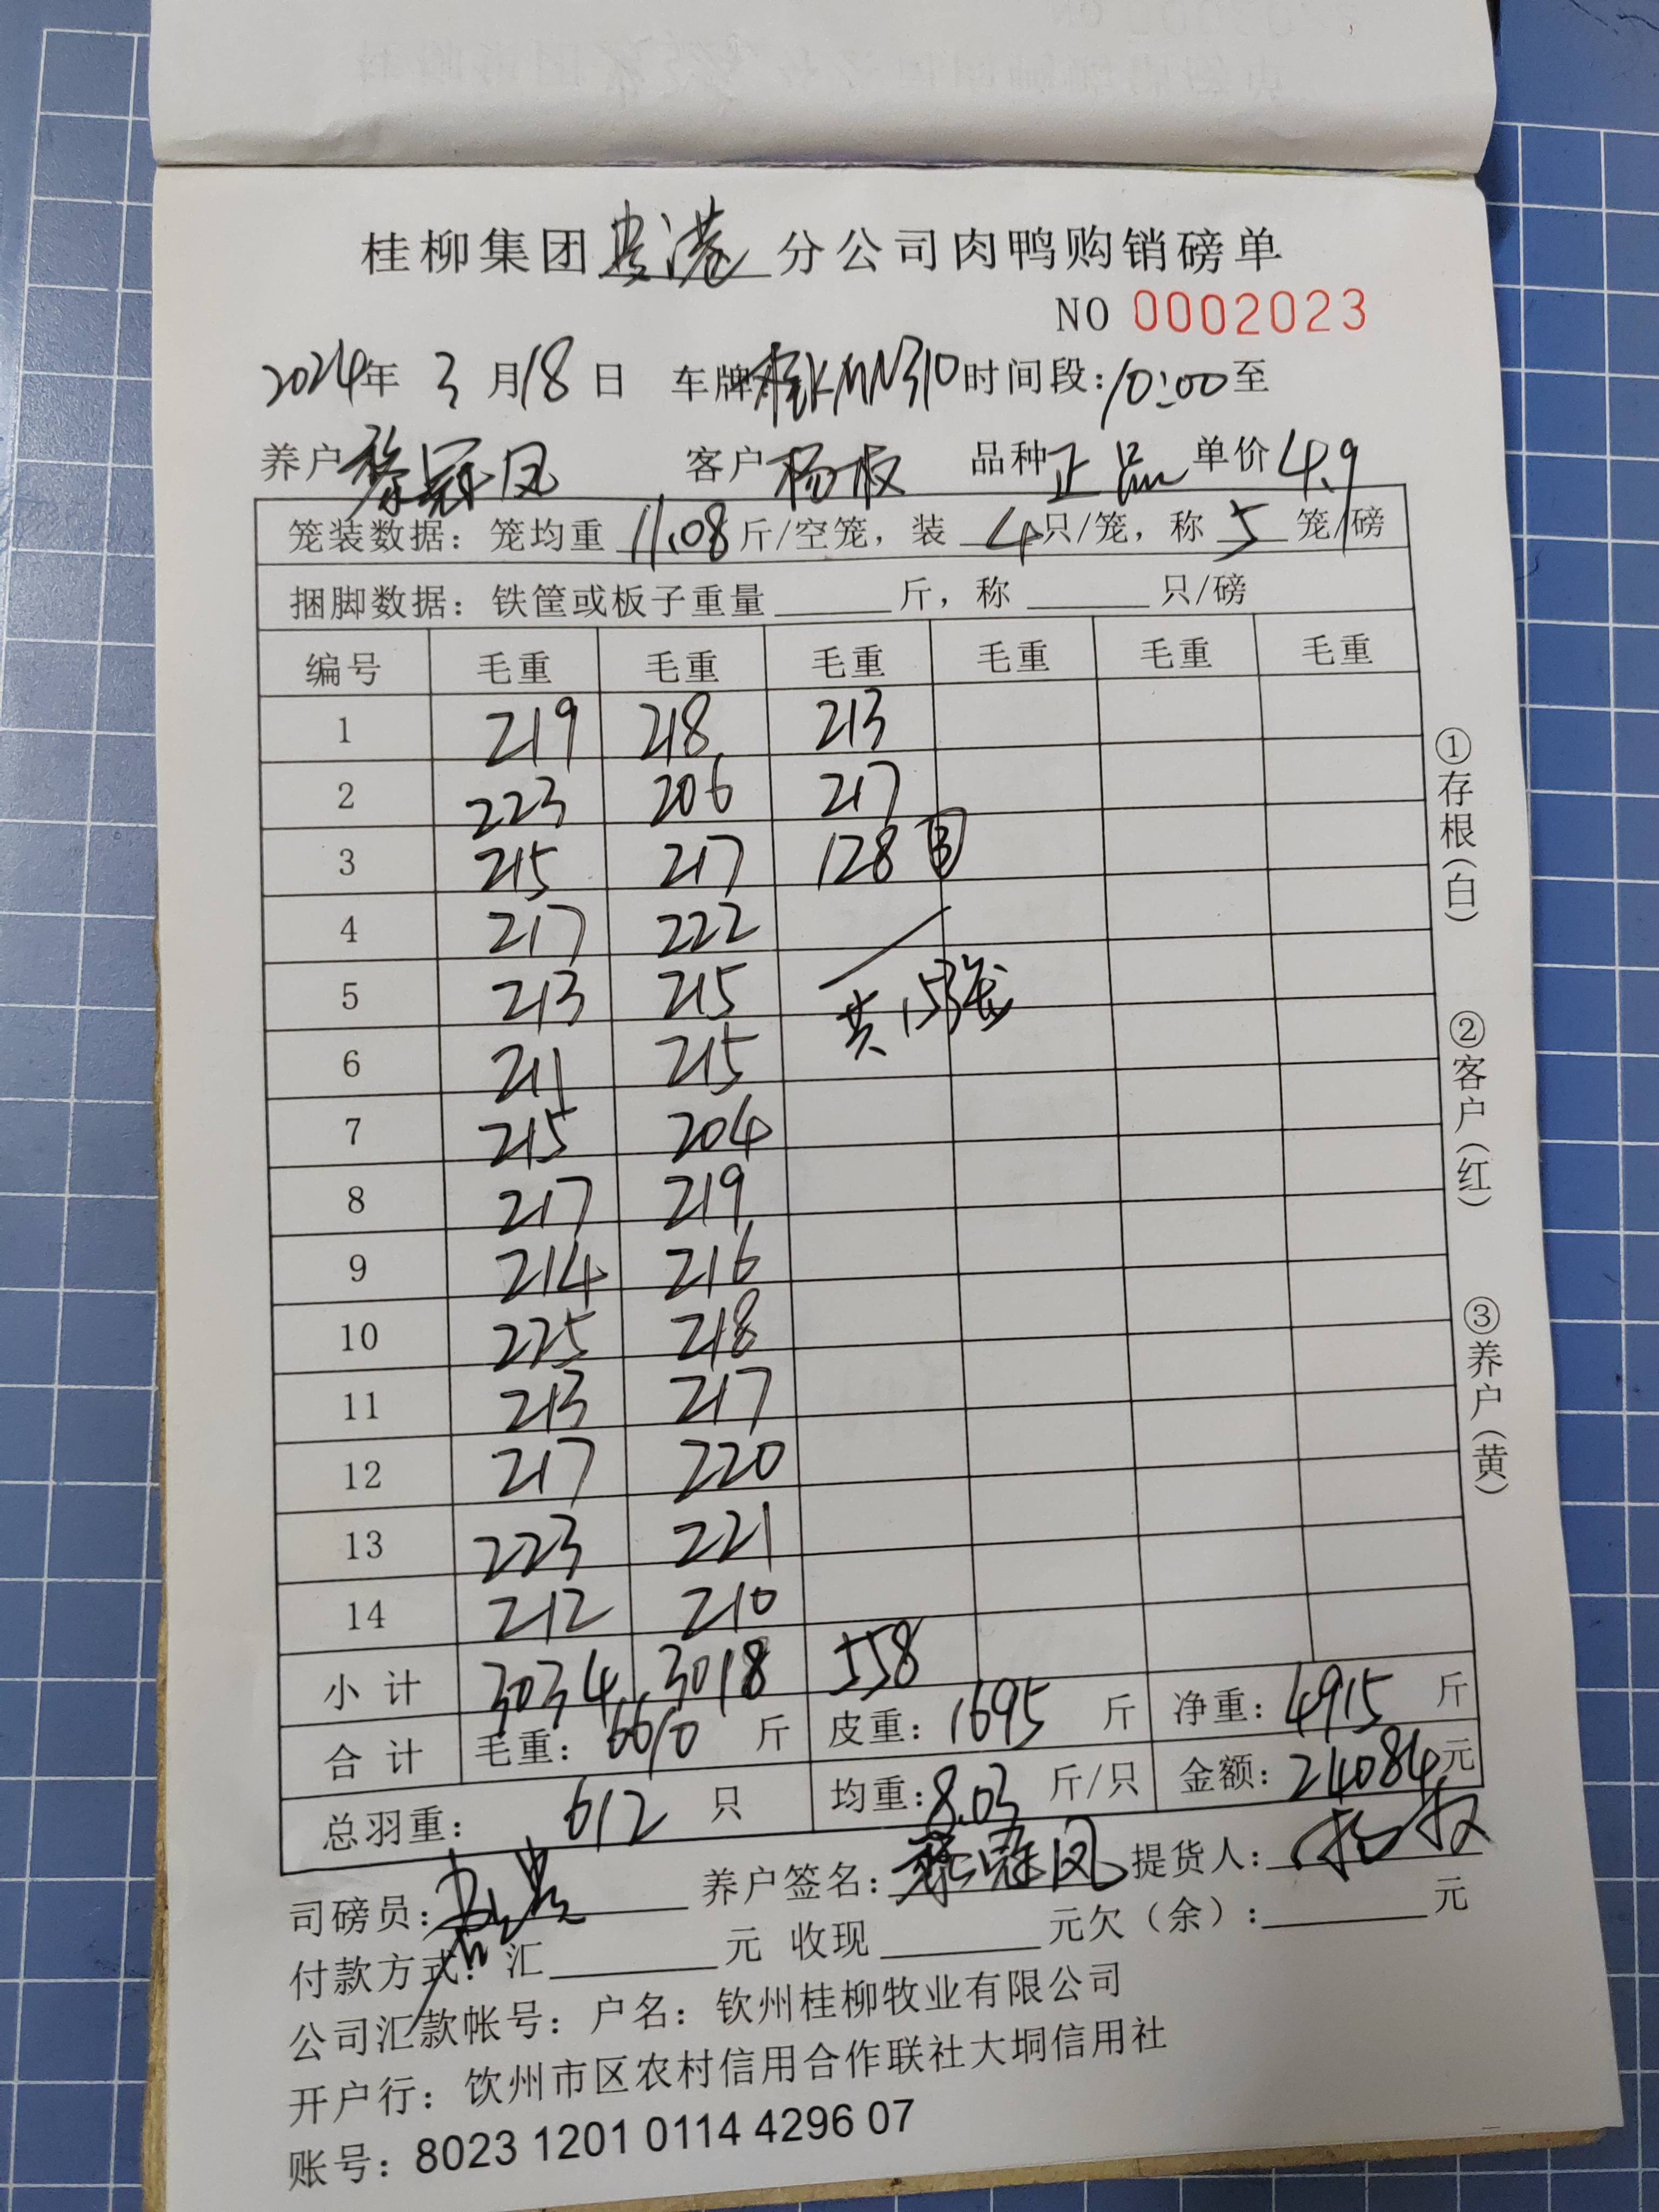 桂柳集团贵港分公司肉鸭购销磅单
NO 0002023
2024年 3 月 18 日 车牌桂KMN310时间段:10:00至
养户黎冠凤 客户杨权 品种正品 单价4.9
笼装数据:笼均重 11.08 斤/空笼,装 4只/笼,称 5 笼/磅
捆脚数据:铁筐或板子重量______斤,称______只/磅
编号 毛重 毛重 毛重 毛重 毛重 毛重
1 219 218 213
2 223 206 217
3 215 217 128 ③
4 217 222
5 213 215 共153笼
6 211 215
7 215 204
8 217 219
9 214 216
10 225 218
11 213 217
12 217 220
13 223 221
14 212 210
小计 3034 3018 558
合计 毛重:6610 斤 皮重:1695 斤 净重:4915 斤
总羽重: 612 只 均重:8.03 斤/只 金额:24084元
司磅员: 养户签名:黎冠凤 提货人:杨权
付款方式:汇______元 收现______元欠(余):______元
公司汇款帐号:户名:钦州桂柳牧业有限公司
开户行:钦州市区农村信用合作联社大垌信用社
账号:8023 1201 0114 4296 07
①存根(白)
②客户(红)
③养户(黄)